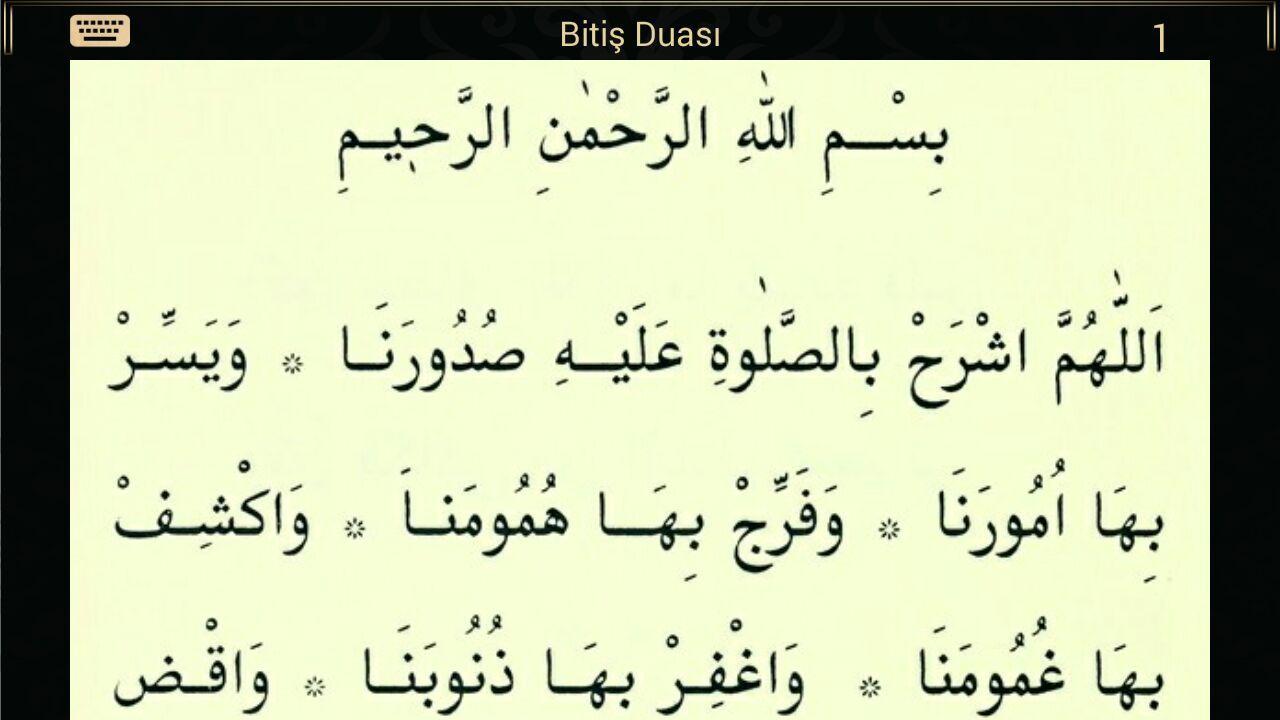 Bitiş Duası
1
بِسْــمِ اللّٰهِ الرَّحْمٰنِ الرَّحٖيـمِ
اَللّٰهُمَّ اشْرَحْ بِالصَّلٰوةِ عَلَيْــهِ صُدُورَنَـا * وَيَسِّـرْ
بِهَا اُمُورَنَا * وَفَرِّجْ بِهَــا هُمُومَنـاَ * وَاكْشِـفْ
بِهَا غُمُومَنَا * وَاغْفِـرْ بِهَـا ذُنُوبَنَـا * وَاقْـضِ